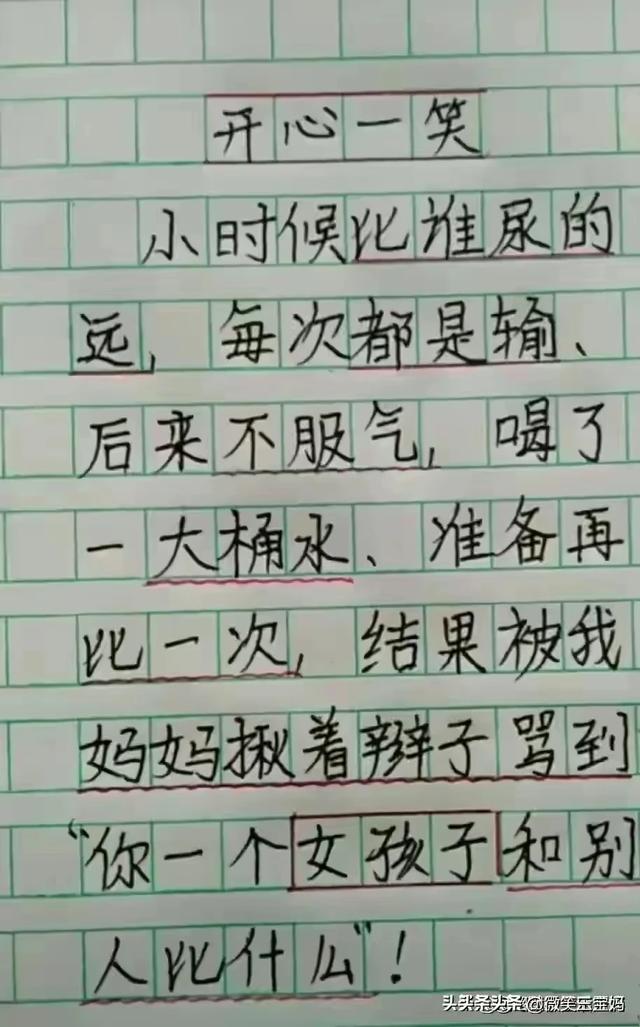 开心一笑
小时候比谁尿的
远，每次都是输、
后来不服气，喝了
一大桶水、准备再
比一次，结果被我
妈妈揪着辫子骂到
“你一个女孩子和别
人比什么”！
头条头条@微笑玉宝妈